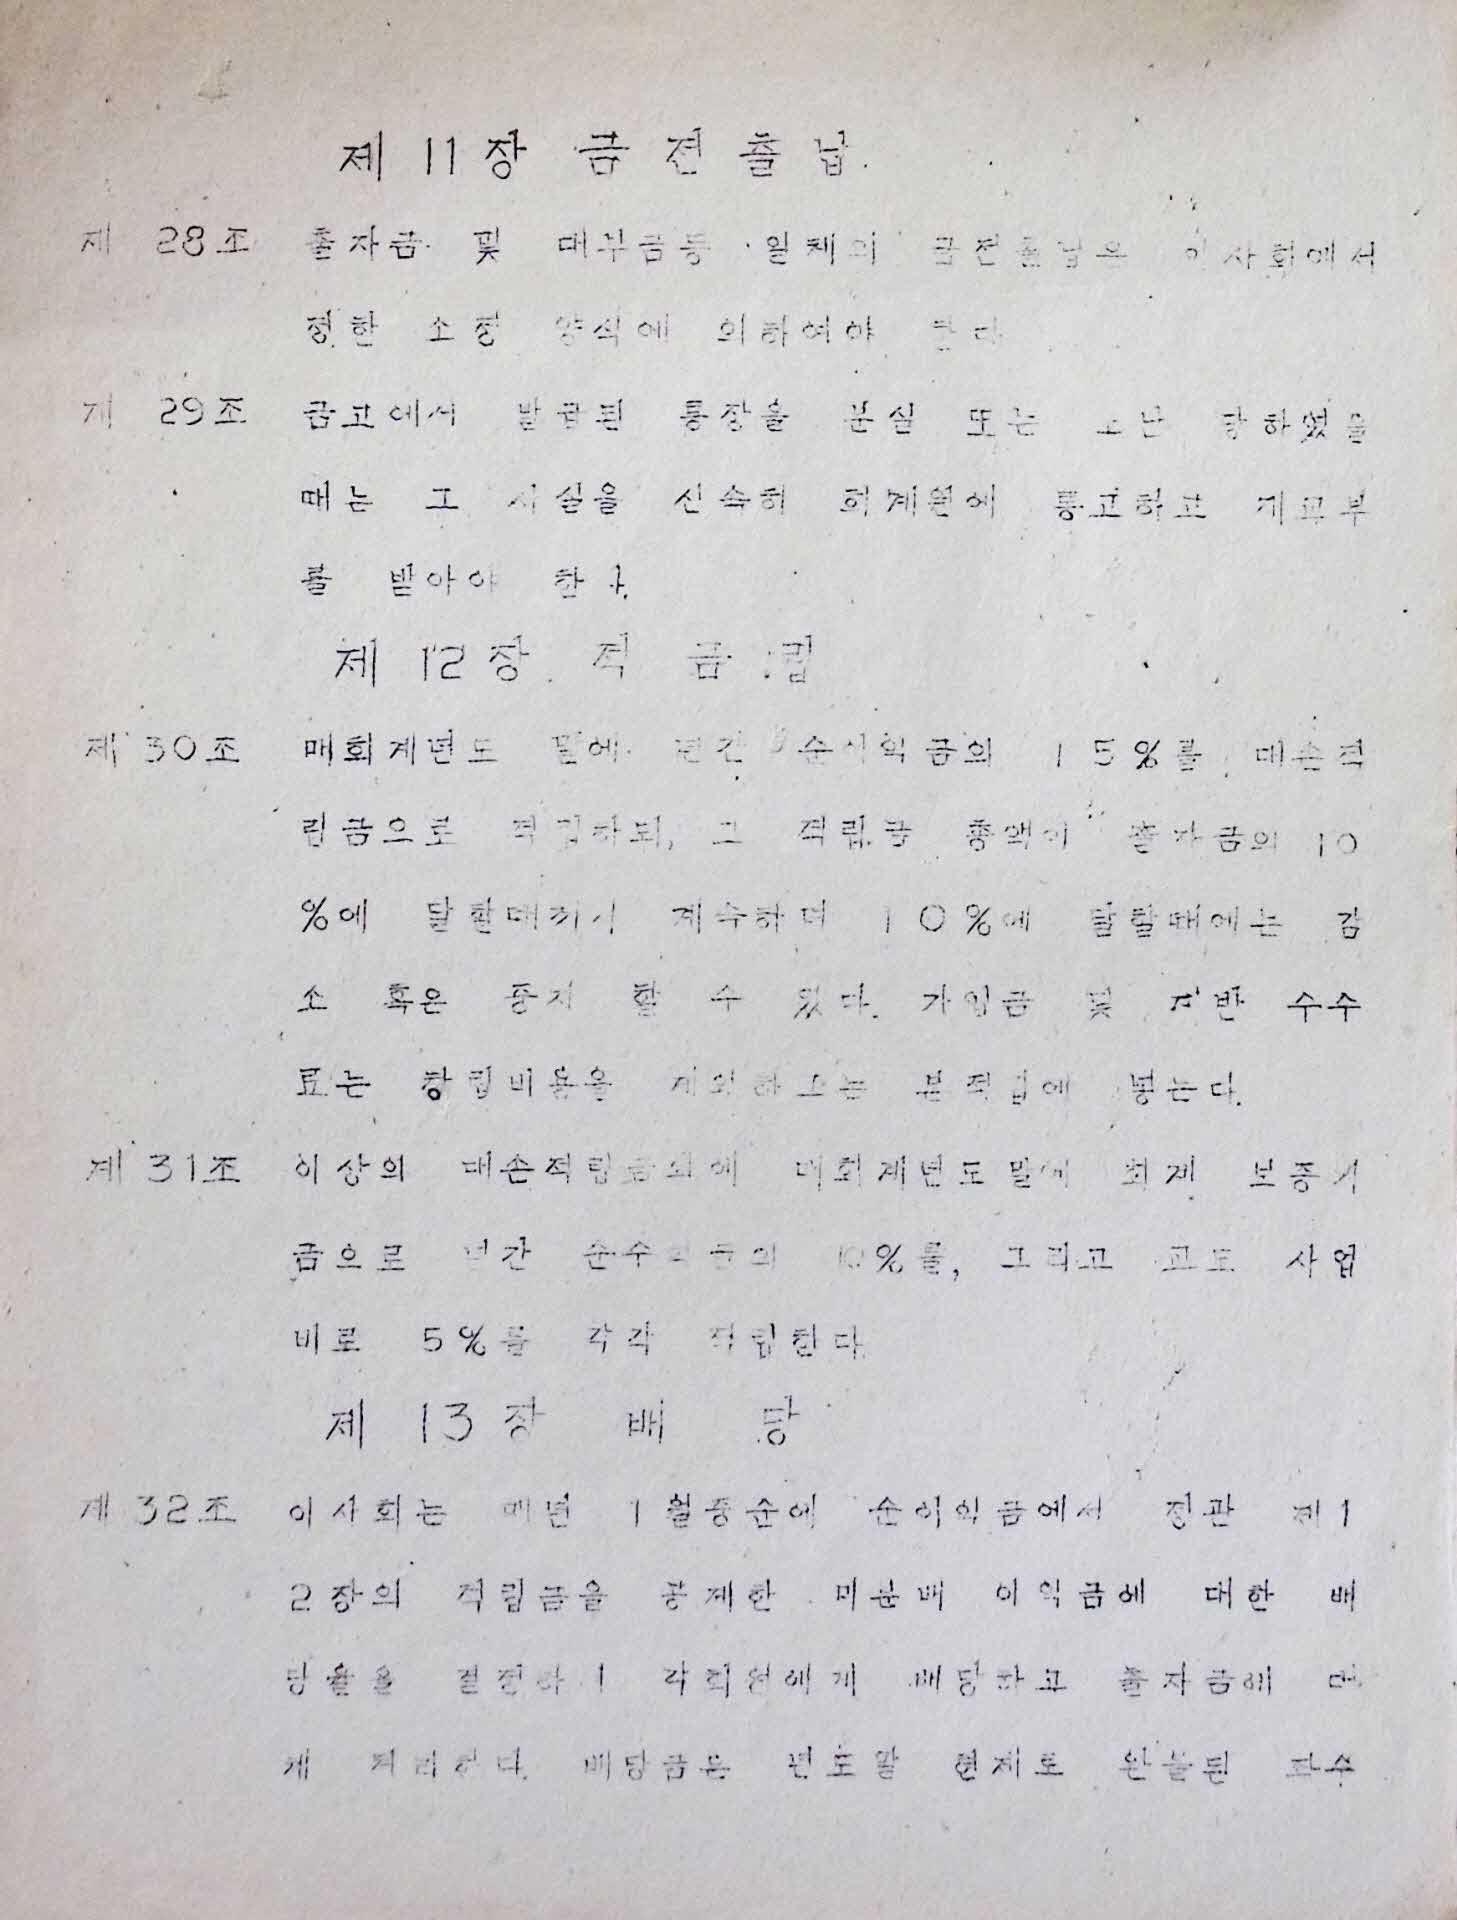 제 11장 금 전 출 납
제 28조 출자금 및 대부금등 일체의 금전출납은 이사회에서
정한 소정 양식에 의하여야 한다
제 29조 금고에서 발급된 통장을 분실 또는 도난 당하였을
때는 그 사실을 신속히 회계원에 통고하고 재교부
를 받아야 한다.
제 12장 적 금 립
제 30조 매회계년도 말에 년간 순이익금의 15%를 대손적
립금으로 적립하되, 그 적립금 총액이 출자금의 10
%에 달할때까지 계속하며 10%에 달할때에는 감
소 혹은 중지 할 수 있다. 가입금 및 제반 수수
료는 창립비용을 제외하고는 본적립에 넣는다.
제 31조 이상의 대손적립금외에 매회계년도말에 보증기
금으로 년간 10%를, 그리고 교도 사업
비로 5%를 각각 적립한다.
제 13장 배 당
제 32조 이사회는 매년 1월중순에 순이익금에서 정관 제1
2장의 적립금을 공제한 미분배 이익금에 대한 배
당율을 결정하여 각회원에게 배당하고 출자금에
게 처리한다. 배당금은 년도말 현재로 완불된 좌수